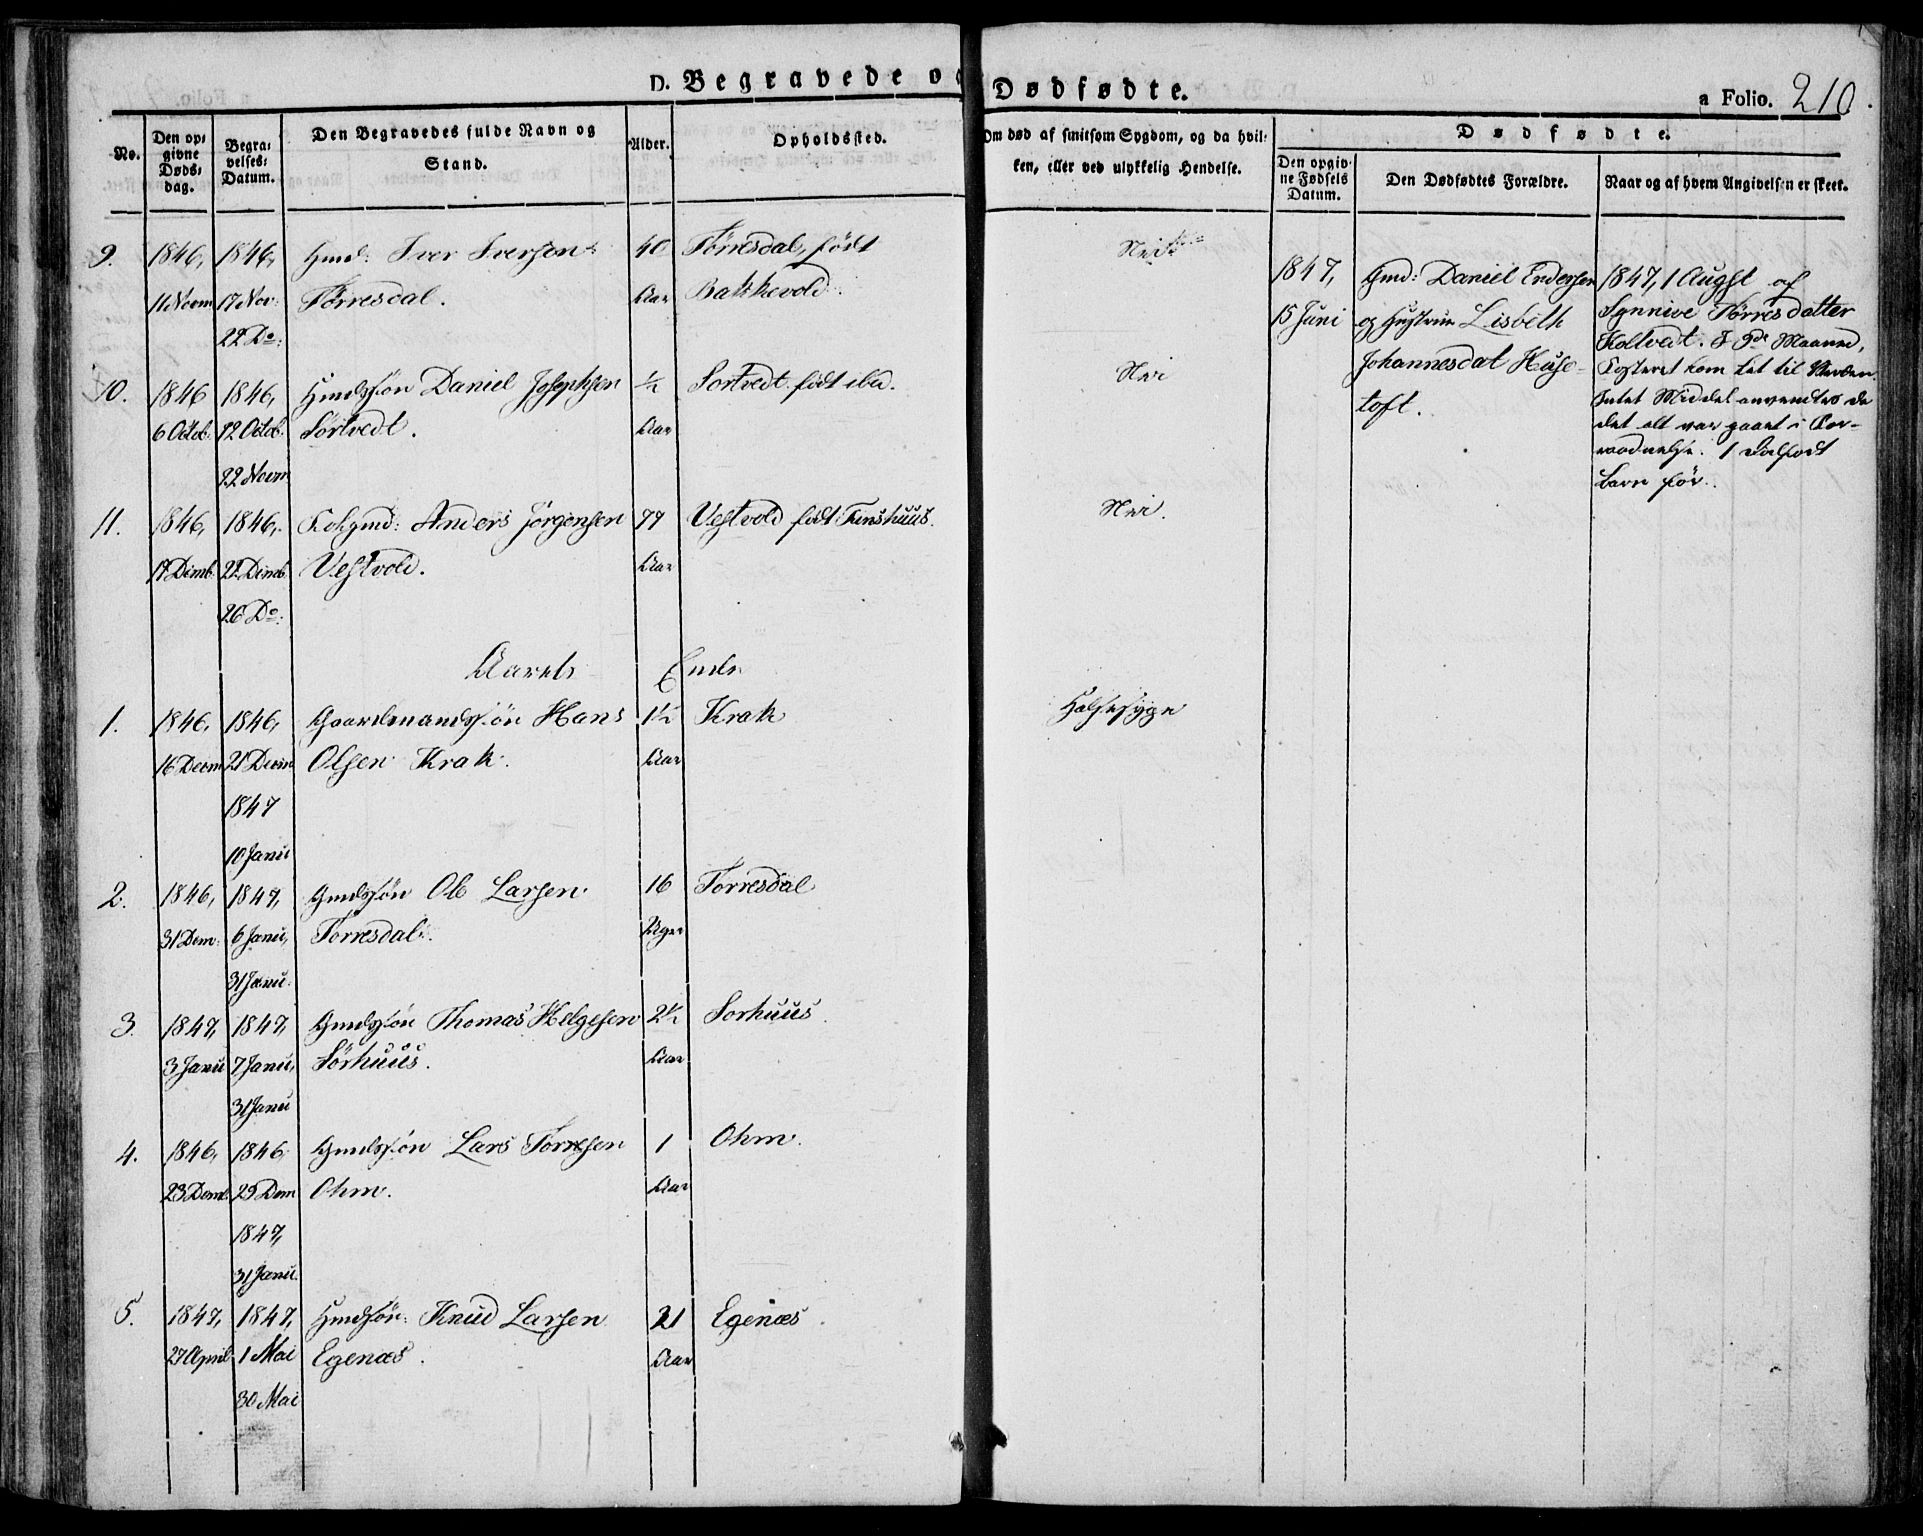 D. Begravede og Dødfødte.
a Folio. 210.
No.
Den op-
givne
Døds-
dag.
Begra-
velses-
Datum.
Den Begravedes fulde Navn og
Stand.
Alder.
Opholdssted.
Om død af smitsom Sygdom, og da hvil-
ken, eller ved ulykkelig Hendelse.
Dødfødte.
Den opgiv-
ne Fødsels
Datum.
Den Dødfødtes Forældre.
Naar og af hvem Angivelsen er skeet.
9. 1846, 1846, Hmd: Iver Iversen 40 Tørresdal, født Nei
11 Novm 17 Nov: Tørresdal. Aar Bakkevold
22 Do:
10. 1846 1846, Hmdssøn Daniel Josephsen ½ Sortvedt født ibd. Nei
6 Octob. 12 Octob. Sørtvedt. Aar
22 Novm
11. 1846, 1846, Anders Jørgensen 77 Vestvold født Nei.
17 Decmb. 21 Decmb. Vestvold. Aar
26 Do:
Aarets Ende
1. 1846, 1846, Gaardmandssøn Hans 1½ Krak Halssyge
16 Decm 21 Decm Olsen Krak. Aar
1847
10 Janu
2. 1846, 1847, Gmdssøn Ole Larsen 16 Torresdal
31 Dem: 6 Janu, Torresdal. Uger
31 Janu.
3. 1847, 1847, Gmdssøn Thomas Helgesen 2½ Sorhuus
3 Janu 7 Janu, Sørhuus. Aar
31 Janu
4. 1846, 1846 Gmdssøn Lars Torresen 1 Ohm.
23 Demb. 29 Dem Ohm. Aar
1847,
31 Janu.
5. 1847, 1847, Hmdsøn: Knud Larsen 21 Egenæs.
27 April 1 Mai Egenæs. Aar
30 Mai
1847, Gmd: Daniel Endersen 1847, 1 Augst af
15 Juni og Hustrue Lisbeth Synnive Tørresdatter
Johannesdat Huse- Koltvedt. I Maaned,
toft. Fosteret kom tet til Verden.
Intet Middel anvendtes da
det alt var gaaet i For-
raadnelse. 1 Dødfødt
Barn før.